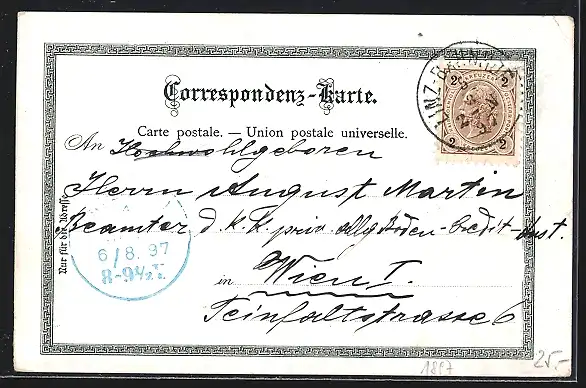 Correspondenz-Karte.
Carte postale. — Union postale universelle.
An Hochwohlgeboren
Herrn August Martin
Beamter d. k. k. priv. allg. Boden-Credit-Anst.
in Wien I.
Teinfaltstrasse 6
Nur für die Adresse
LINZ-BAHNHOF
2 2
2 2
6/8.97
8-9½V.
1897
25.-